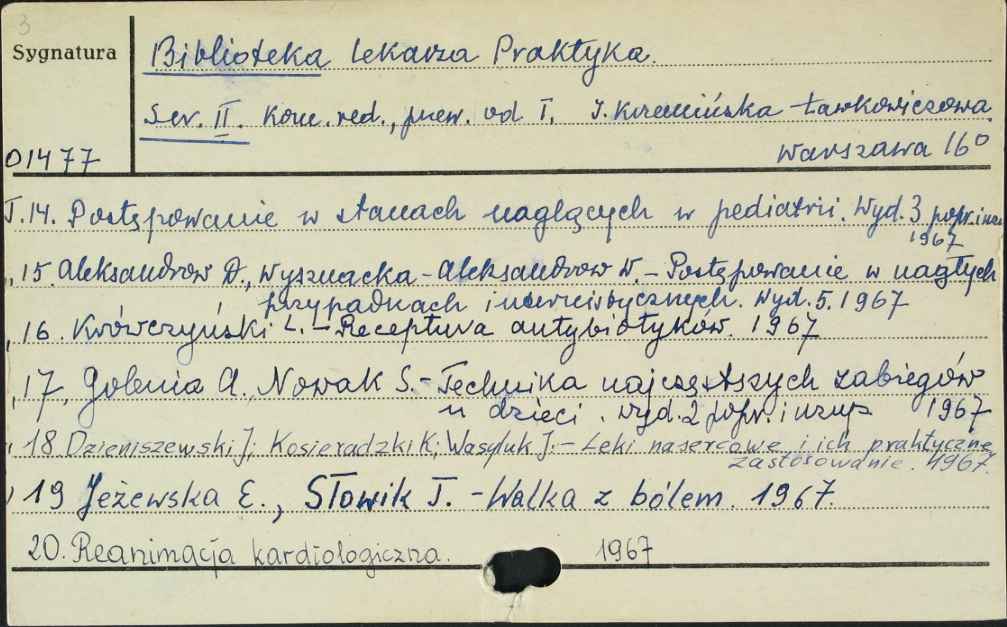 3
Sygnatura
Biblioteka Lekarza Praktyka.
Ser. II. Kom. red., przew. od T. I. J. Krzemińska-Ławkowiczowa
01477
Warszawa 16°
T.14. Postępowanie w stanach naglących w pediatrii. Wyd. 3 popr. i uz.
1967
„ 15. Aleksandrow D., Wysznacka-Aleksandrow W. - Postępowanie w nagłych
przypadkach internistycznych. Wyd. 5. 1967
„ 16. Krówczyński L. - Receptura antybiotyków. 1967
„ 17. Golenia A., Nowak S. - Technika najczęstszych zabiegów
u dzieci. Wyd. 2 popr. i uzup 1967
„ 18 Dzieniszewski J; Kosieradzki K; Wasyluk J. - Leki nasercowe i ich praktyczne
zastosowanie. 1967.
„ 19 Jeżewska E., Słowik T. - Walka z bólem. 1967.
20. Reanimacja kardiologiczna. 1967